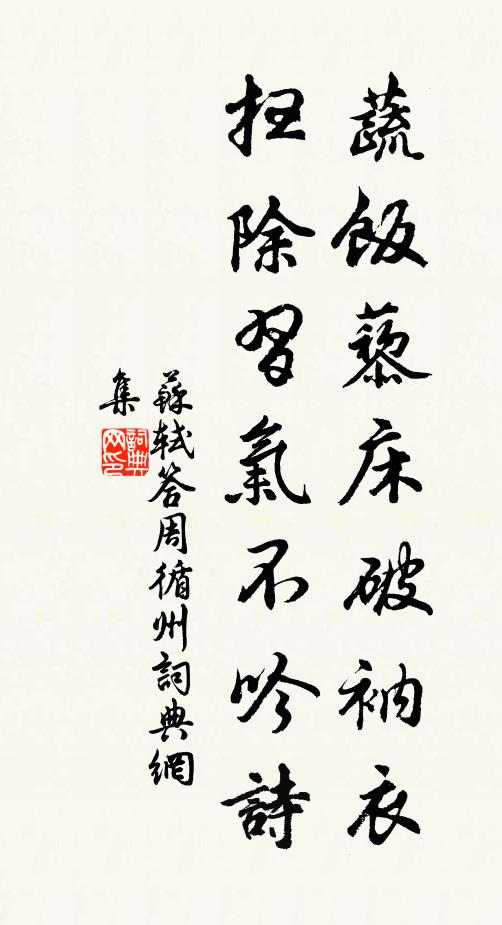 蔬飯藜床破衲衣
掃除習氣不吟詩
蘇軾答周循州詞典網
集
詞典网印